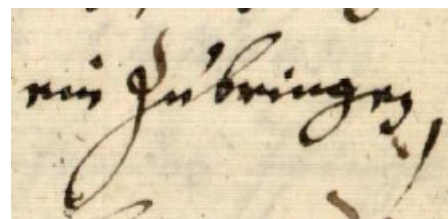 ein Zubringen,